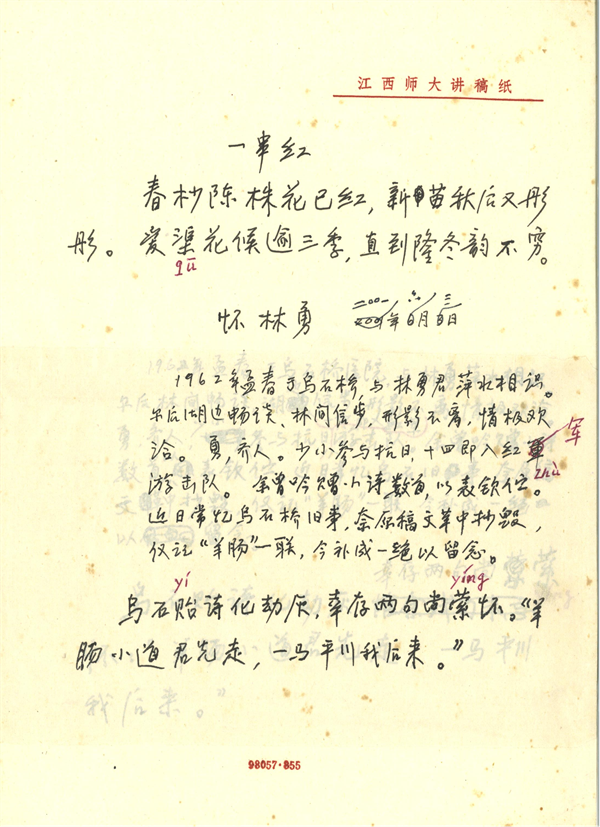 江西师大讲稿纸
一串红
春杪陈株花已红，新苗秋后又彤
彤。爱渠花候逾三季，直到隆冬韵不穷。
qú
怀林勇 二〇〇一年六月三日
1962年孟春于乌石桥，与林勇君萍水相识。
尔后湖边畅谈、林间信步，形影不离，情极欢
洽。勇，齐人。少小参与抗日，十四即入红军
军
游击队。余曾吟赠小诗数首，以表钦伫。
zhù
近日常忆乌石桥旧事，奈原稿文革中抄毁，
仅记“羊肠”一联，今补成一绝以留念。
yí yíng
乌石贻诗化劫灰，幸存两句尚萦怀。“羊
肠小道君先走，一马平川我后来。”
98057·855